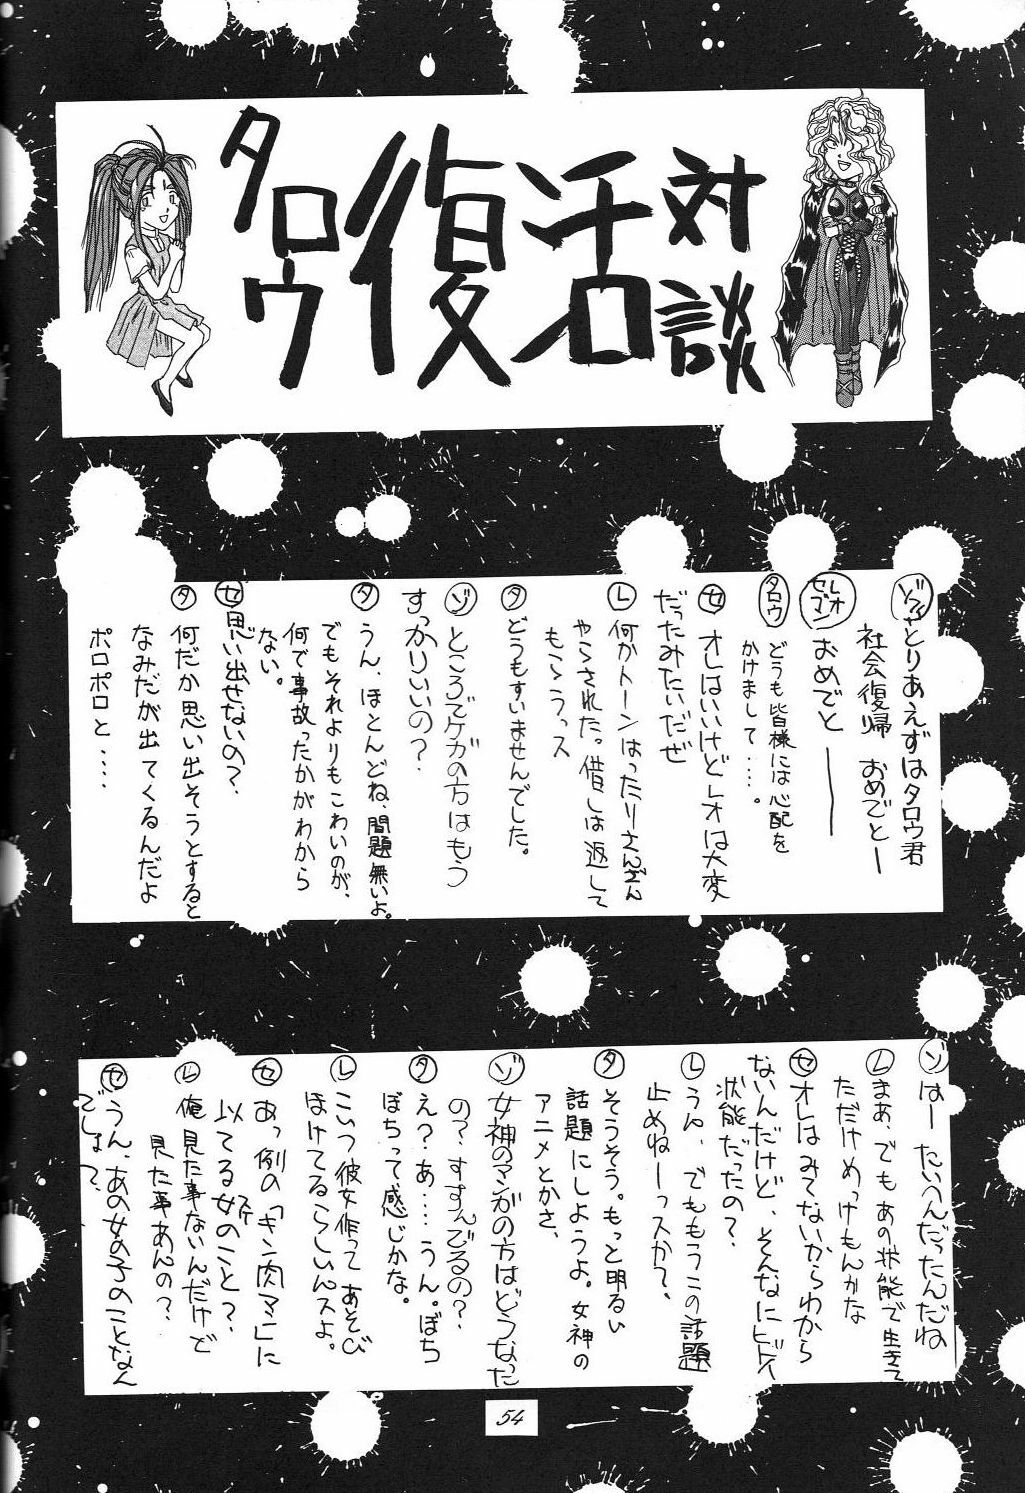 タロウ復活対談
ゾイ とりあえずはタロウ君
社会復帰 おめでとー
レオ
セブン おめでとーーー
タロウ どうも皆様には心配を
かけまして‥‥。
セ オレはいいけどレオは大変
だったみたいだぜ
L 何かトーンはったりさんざん
やらされた。借しは返して
もらうっス
タ どうもすいませんでした。
ゾ ところでケガの方はもう
すっかりいいの?
タ うん、ほとんどね、問題無いよ。
でもそれよりもこわいのが、
何で事故ったかがわから
ない。
セ 思い出せないの?
タ 何だか思い出そうとすると
なみだが出てくるんだよ
ポロポロと‥‥
ゾ はー たいへんだったんだね
L まあ、でもあの状態で生きて
ただけめっけもんかな
セ オレはみてないからわから
ないんだけど、そんなにヒドイ
状態だったの?
L うん、でももうこの話題
止めねーっスか?
タ そうそう。もっと明るい
話題にしようよ。女神の
アニメとかさ、
ゾ 女神のマンガの方はどうなった
の?、すすんでるの?
タ え?あ‥‥うん。ぼち
ぼちって感じかな。
L こいつ彼女作ってあそび
ほけてるらしいんスよ。
セ あっ例の「キン肉マン」に
以てる女のこと?
L 俺見た事ないんだけど
見た事あんの?
セ うん、あの女の子のことなん
でしょ?
54